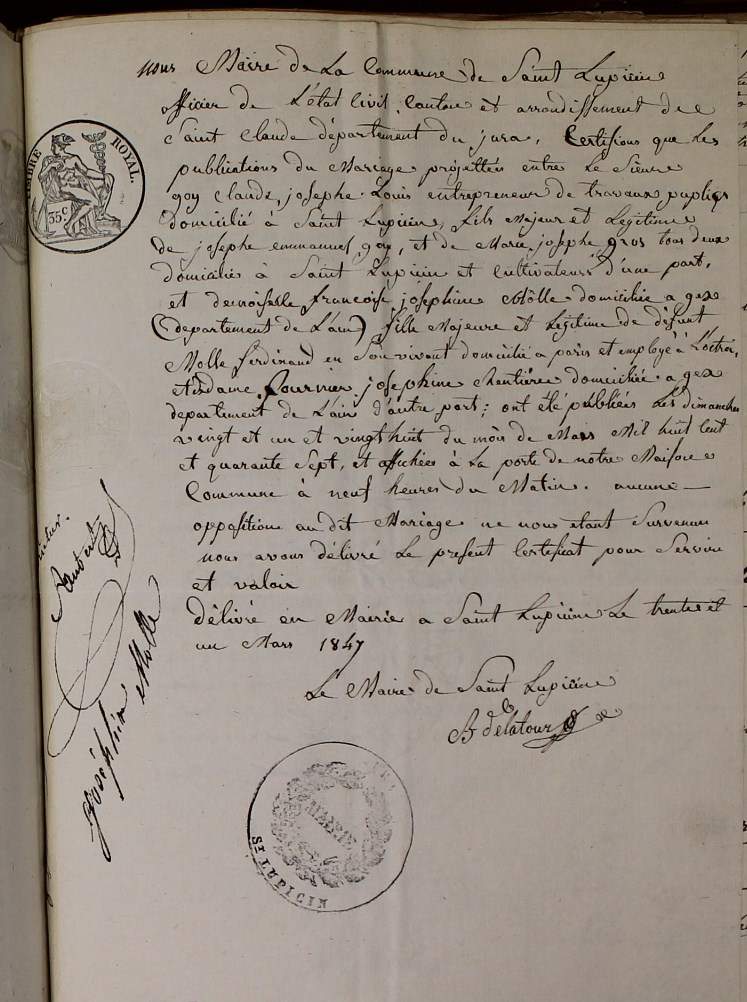 TIMBRE ROYAL.
35 c
nous Maire de La Commune de Saint Lupicin
officier de L'état Civil, Canton et arrondissement de
Saint Claude département du jura, Certifions que Les
publications du Mariage projettées entre Le Sieur
goy Claude, josephe Louis entrepreneur de travaux publics
domicilié à Saint Lupicin, fils Majeur et Legitime
de josephe emmanuel goy, et de Marie josephe gros tous deux
domiciliés à Saint Lupicin et Cultivateurs d'une part,
et demoiselle francoise josephine Môlle domiciliée a gex
(departement de L'ain) fille Majeure et Légitime de défunt
Molle ferdinand en Son vivant domicilié a paris et employé à L'octroi,
et dame fournier josephine Rentière domiciliée a gex
departement de L'ain d'autre part; ont été publiées Les dimanches
vingt et un et vingt huit du mois de Mars Mil huit Cent
et quarante Sept, et affichées à La porte de notre Maison
Commune à neuf heures du Matin. aucune
opposition au dit Mariage ne nous étant Survenue
nous avons délivré Le present Certificat pour Servir
et valoir
délivré en Mairie a Saint Lupicin Le trente et
un Mars 1847
Le Maire de Saint Lupicin
delatour
Joséphine Molle
MAIRIE
ST LUPICIN